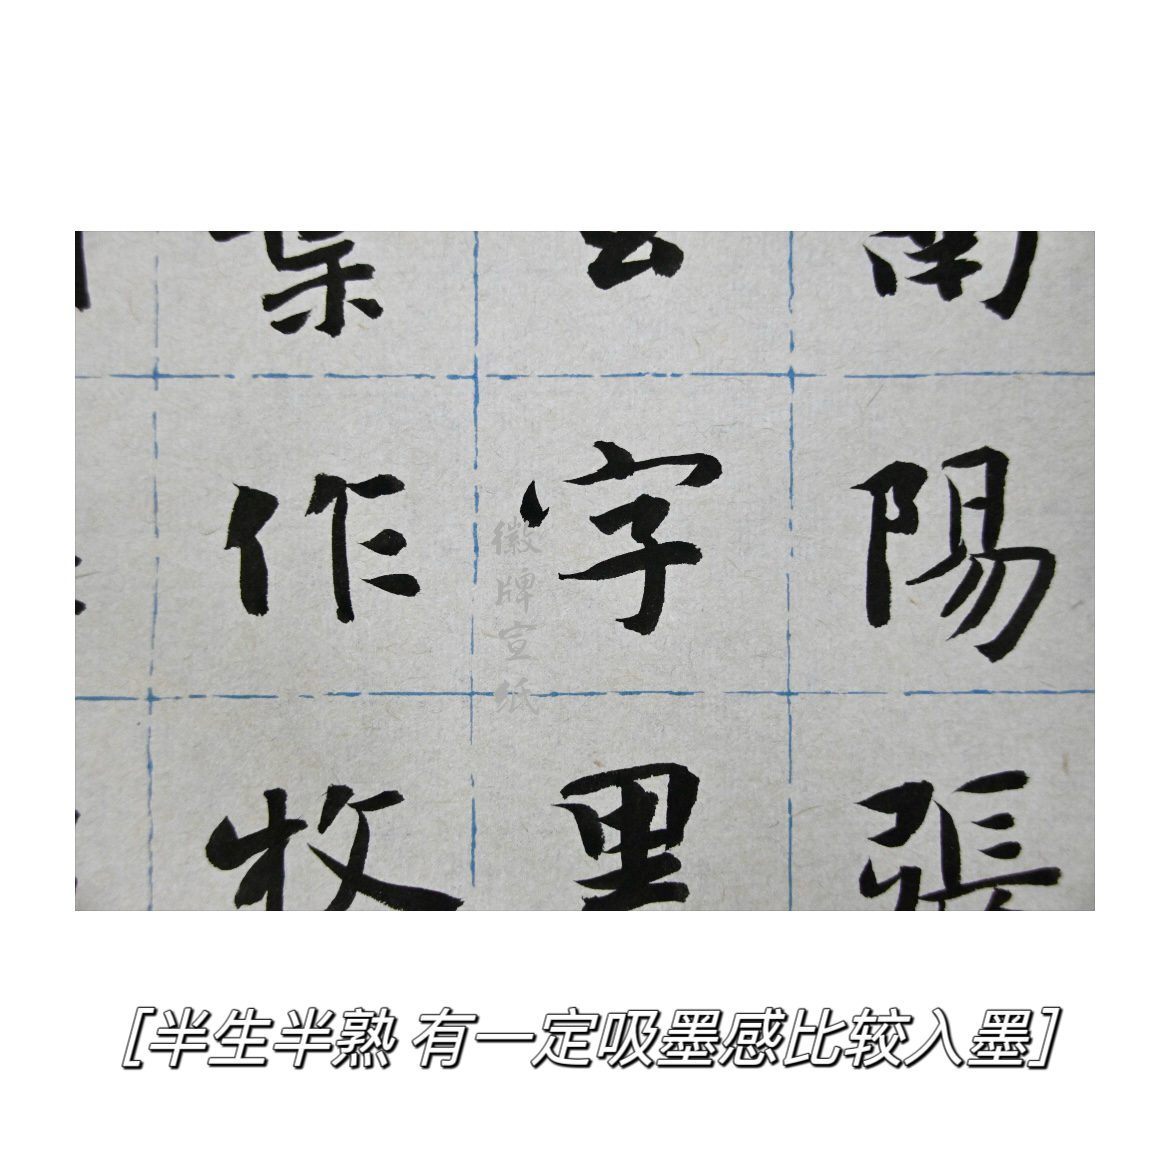 南陽張
字里
作牧
徽牌宣纸
[半生半熟 有一定吸墨感比较入墨]